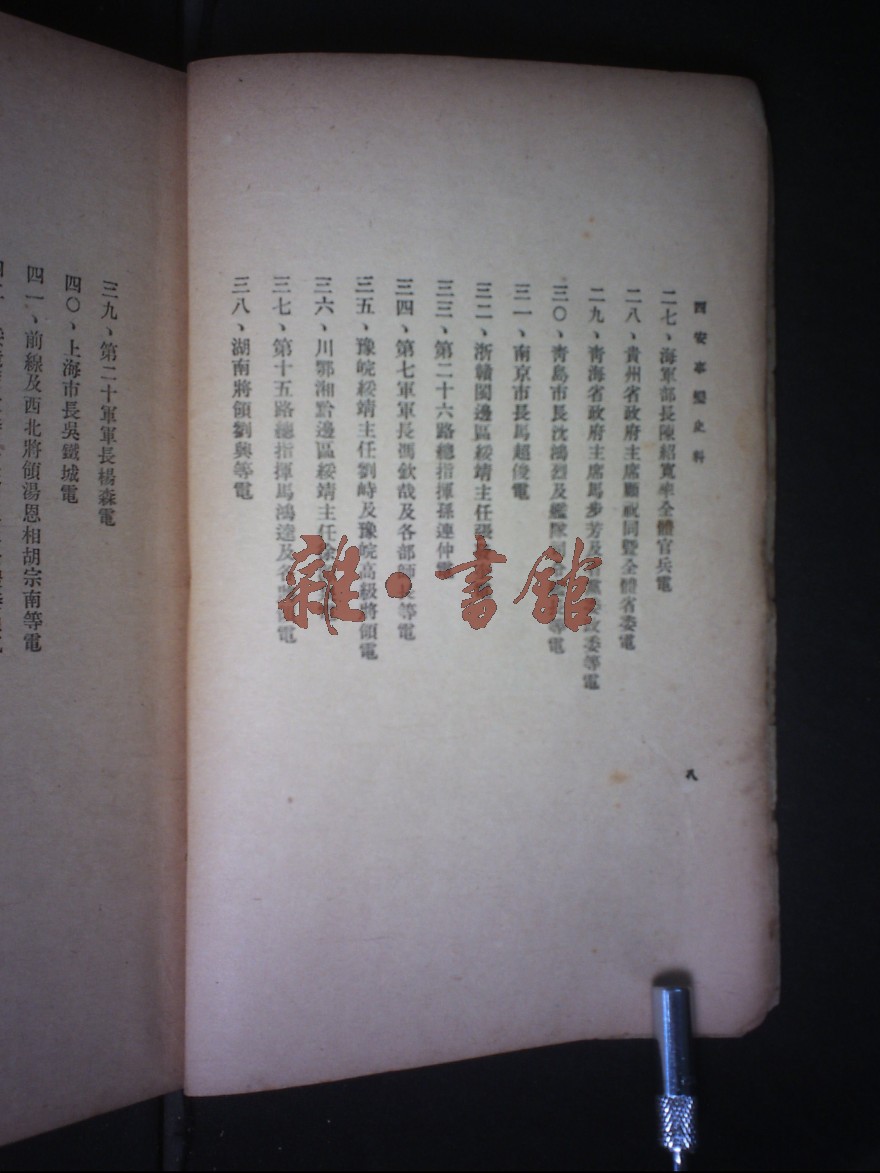 西安事變史料
二七、海軍部長陳紹寬率全體官兵電
二八、貴州省政府主席顧祝同暨全體省委電
二九、靑海省政府主席馬步芳及委等電
三〇、靑島市長沈鴻烈及艦隊等電
三一、南京市長馬超俊電
三二、浙贛閩邊區綏靖主任張
三三、第二十六路總指揮孫連仲電
三四、第七軍軍長馮欽哉及各部師長等電
三五、豫皖綏靖主任劉峙及豫皖高級將領電
三六、川鄂湘黔邊區綏靖主任徐
三七、第十五路總指揮馬鴻逵及各將領電
三八、湖南將領劉興等電
八
三九、第二十軍軍長楊森電
四〇、上海市長吳鐵城電
四一、前線及西北將領湯恩相胡宗南等電
雜·書館